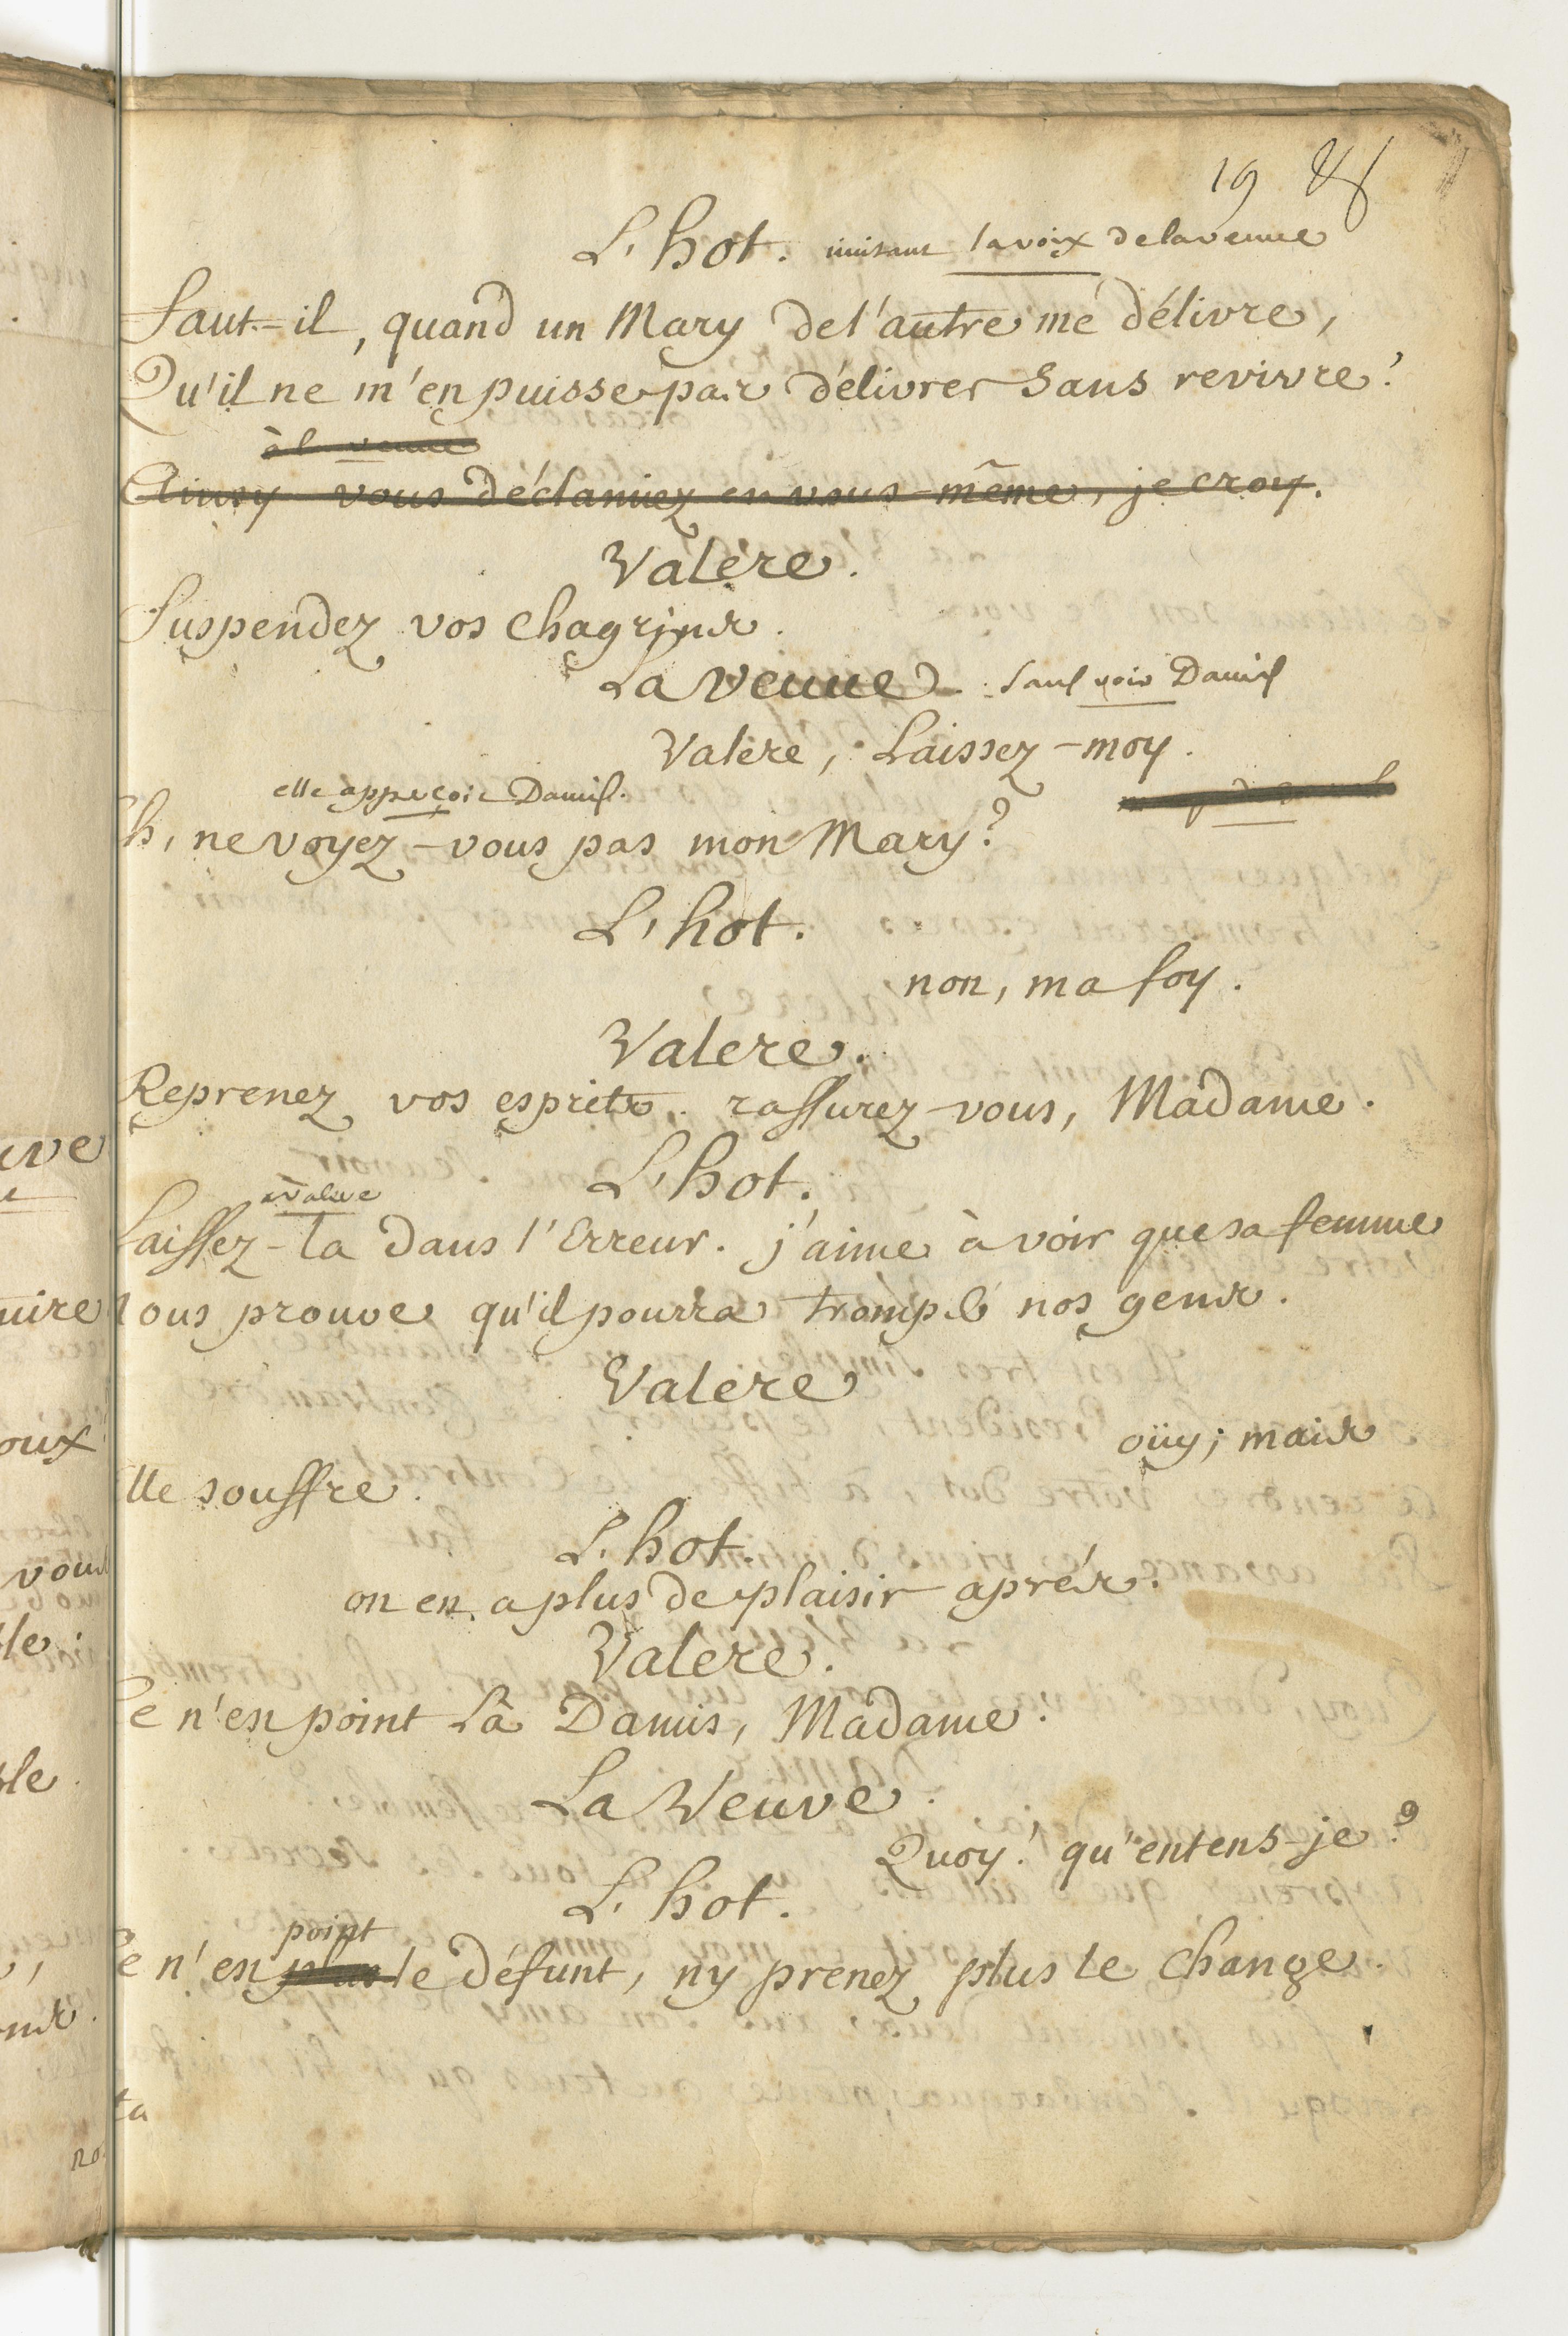 19
L'hot. imitant la voix de la veuve
Faut-il, quand un Mary de l'autre me délivre,
Qu'il ne m'en puisse pas délivrer sans revivre?
à la veuve
Ainsy vous déclamiez en vous-même, je croy.
Valere.
Suspendez vos chagrins.
La veuve. sans voir Damis
Valere, Laissez-moy.
elle apperçoit Damis.
Eh, ne voyez-vous pas mon Mary?
L'hot.
non, ma foy.
Valere.
Reprenez vos esprits. rassurez-vous, Madame.
L'hot.
à Valere
Laissez-la dans l'Erreur. j'aime à voir que sa femme
nous prouve qu'il pourra nos gens.
Valere
oüy; mais
elle souffre.
L'hot.
on en a plus de plaisir aprés.
Valere.
Ce n'est point là Damis, Madame.
La Veuve.
Quoy! qu'entens-je?
L'hot.
point
Ce n'est plus le défunt, ny prenez plus le change.